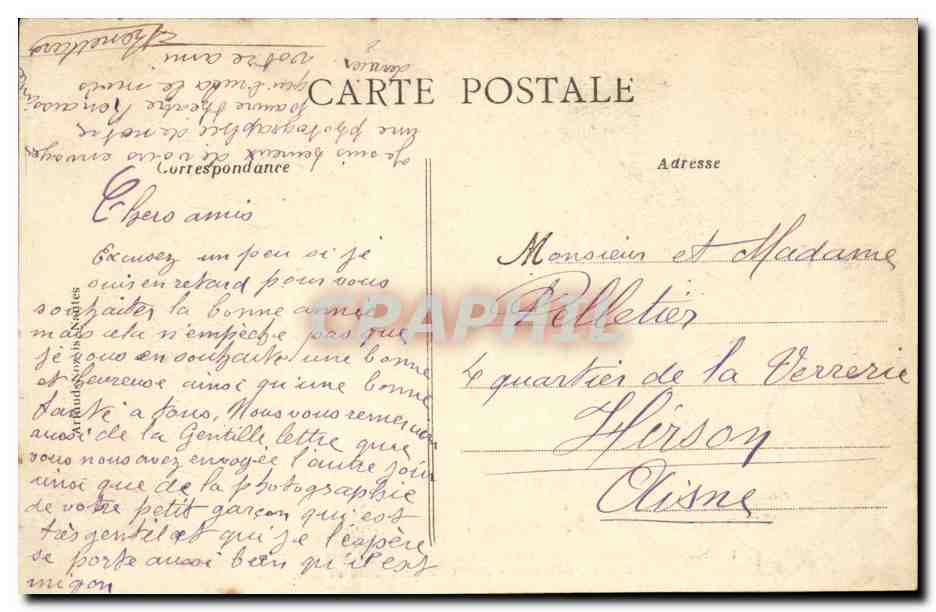 CARTE POSTALE
Correspondance
Adresse
Chers amis
Excusez un peu si je
suis en retard pour vous
souhaiter la bonne année
mais cela n'empêche pas que
je vous en souhaite une bonne
et heureuse ainsi qu'une bonne
santé a tous, Nous vous remercions
aussi de la Gentille lettre que
vous nous avez envoyée l'autre jour
ainsi que de la photographie
de votre petit garçon qui est
très gentil et qui je l'éspère
se porte aussi bien qu'il est
mignon
Je suis heureux de vous envoyer
une photographie de notre
pauvre théatre
le mois
dernier
votre ami
Monsieur et Madame
Pelletier
4 quartier de la Verrerie
Hirson
Aisne
Artaud-Nozais Nantes
GRAPHIL